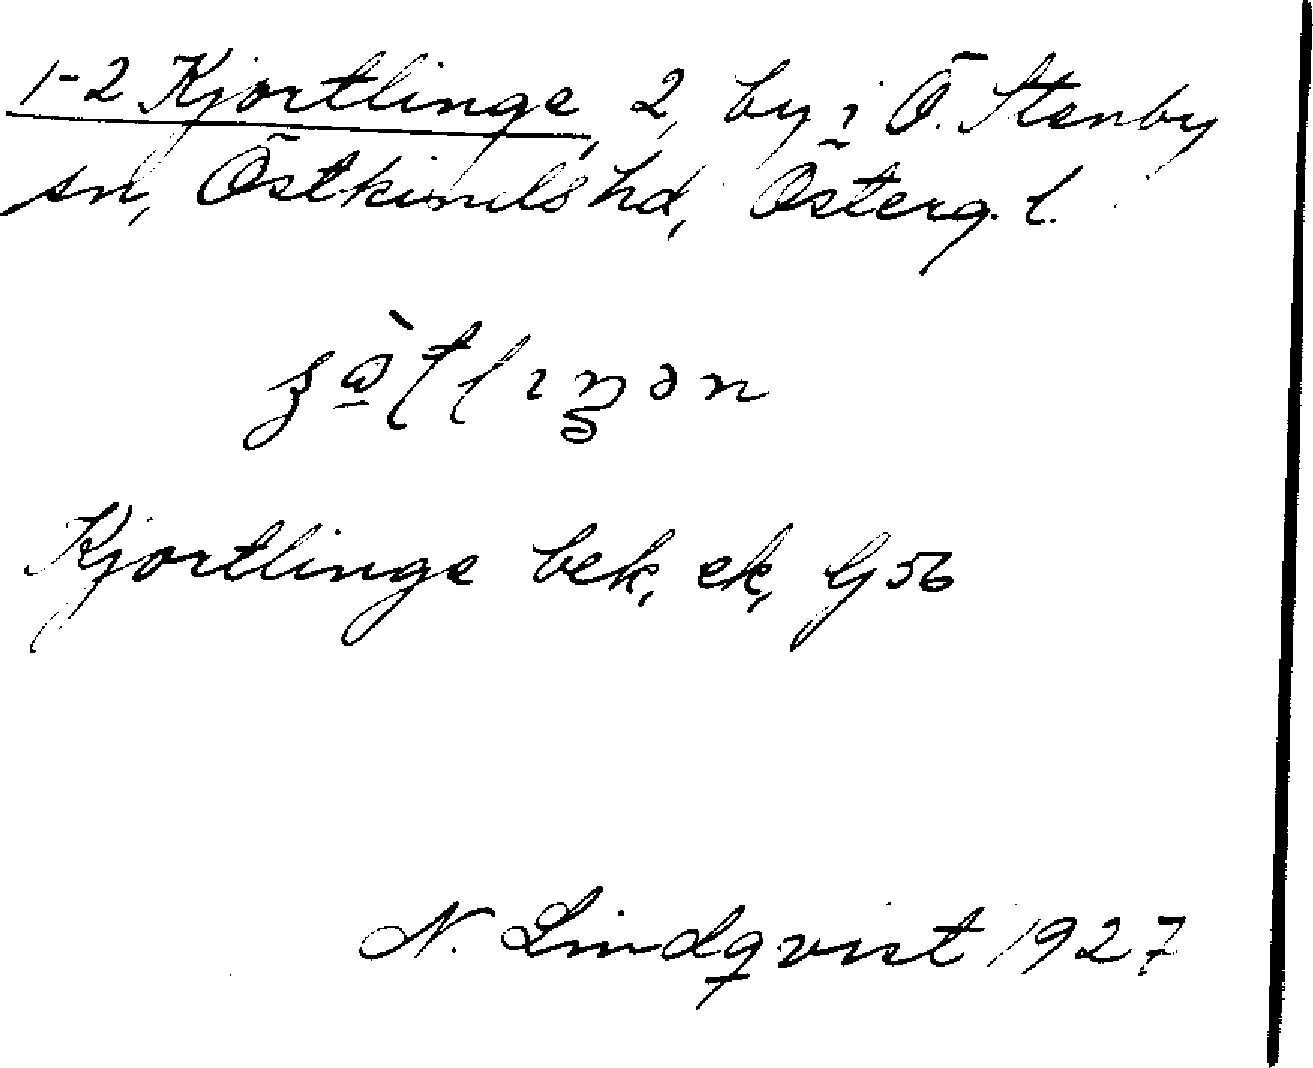 1-2 Kjortlinge, 2, by i Ö. Stenby
sn, Östkinds hd, Österg. l.
Kjortlinge bek, ek, Gj 56
N. Lindqvist 1927